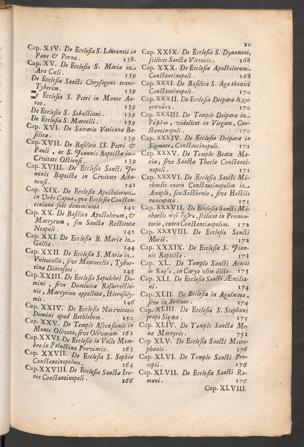 xv
Cap. XIV. De Ecclesia S. Laurentii in
Pane & Perna. 138.
Cap. XV. De Ecclesia S. Mariæ in
Ara Cœli. 139
De Ecclesia Sancti Chrysogoni trans
Tyberim. 139
De Ecclesia S. Petri in Monte Au-
reo. 139
De Ecclesia S. Sebastiani. 139
De Ecclesia S. Marcelli. 139
Cap. XVI. De Sacrario Vaticanæ Ba-
silicæ. 139
Cap. XVII. De Basilica SS. Petri &
Pauli, & S. Joannis Baptistæ in
Civitate Ostiensi. 139
Cap. XVIII. De Ecclesia Sancti Jo-
annis Baptistæ in Civitate Alba-
nensi. 141
Cap. XIX. De Ecclesia Apostolorum
in Urbe Capua, quæ Ecclesia Constan-
tiniana fuit denominata. 141
Cap. XX. De Basilica Apostolorum, &
Martyrum, seu Sancta Restituta
Neapoli. 141
Cap. XXI. De Ecclesia B. Mariæ in
Gallia. 144
Cap. XXII. De Ecclesia S. Mariæ in
Vulturella, sive Mentorella, Tybur-
tinæ Diœcesis. 145
Cap. XXIII. De Ecclesia Sepulchri Do-
mini, sive Dominicæ Resurrectio-
nis, Martyrion appellata, Hierosoly-
mis. 146
Cap. XXIV. De Ecclesia Nativitatis
Domini apud Bethlehem. 150
Cap. XXV. De Templo Ascensionis in
Monte Oliveto, sive Olivarum. 161
Cap. XXVI. De Ecclesia in Valle Mam-
bre in Palæstina Provincia. 163
Cap. XXVII. De Ecclesia S. Sophiæ
Constantinopoleos. 164
Cap. XXVIII. De Ecclesia Sanctæ Ire-
nes Constantinopoli. 166
Cap. XXIX. De Ecclesia S. Dynameos,
scilicet Sanctæ Virtutis. 168
Cap. XXX. De Ecclesia Apostolorum
Constantinopoli. 168
Cap. XXXI. De Basilica S. Agathonici
Constantinopoli. 170
Cap. XXXII. De Ecclesia Deiparæ
170
Cap. XXXIII. De Templo Deiparæ in
videlicet in Virgam, Con-
stantinopoli. 170
Cap. XXXIV. De Ecclesia Deiparæ in
Sigmate, Constantinopoli. 171
Cap. XXXV. De Templo Beatæ Ma-
riæ, sive Sanctæ Theclæ Constanti-
nopoli. 171
Cap. XXXVI. De Ecclesia Sancti Mi-
chaelis extra Constantinopolim in
Anaplo, seu Sosthenio, sive Hestiis
nuncupata. 171
Cap. XXXVII. De Ecclesia Sancti Mi-
chaelis scilicet in Promon-
torio, extra Constantinopolim. 172
Cap. XXXVIII. De Ecclesia Sancti
Mocii. 172
Cap. XXXIX. De Ecclesia S. Joan-
nis Baptistæ. 173
Cap. XL. De Templo Sancti Acacii
in Carya ultra dicto. 173
Cap. XLI. De Ecclesia Sancti Æmilia-
ni. 174
Cap. XLII. De Ecclesia in Agalmata,
sive in Statuas. 174
Cap. XLIII. De Ecclesia S. Stephani
prope Sigma. 175
Cap. XLIV. De Templo Sancti Me-
næ Martyris. 175
Cap. XLV. De Ecclesia Sancti Metro-
phanis. 176
Cap. XLVI. De Templo Sancti Pro-
copii. 176
Cap. XLVII. De Ecclesia Sancti Ro-
mani. 176
Cap. XLVIII.